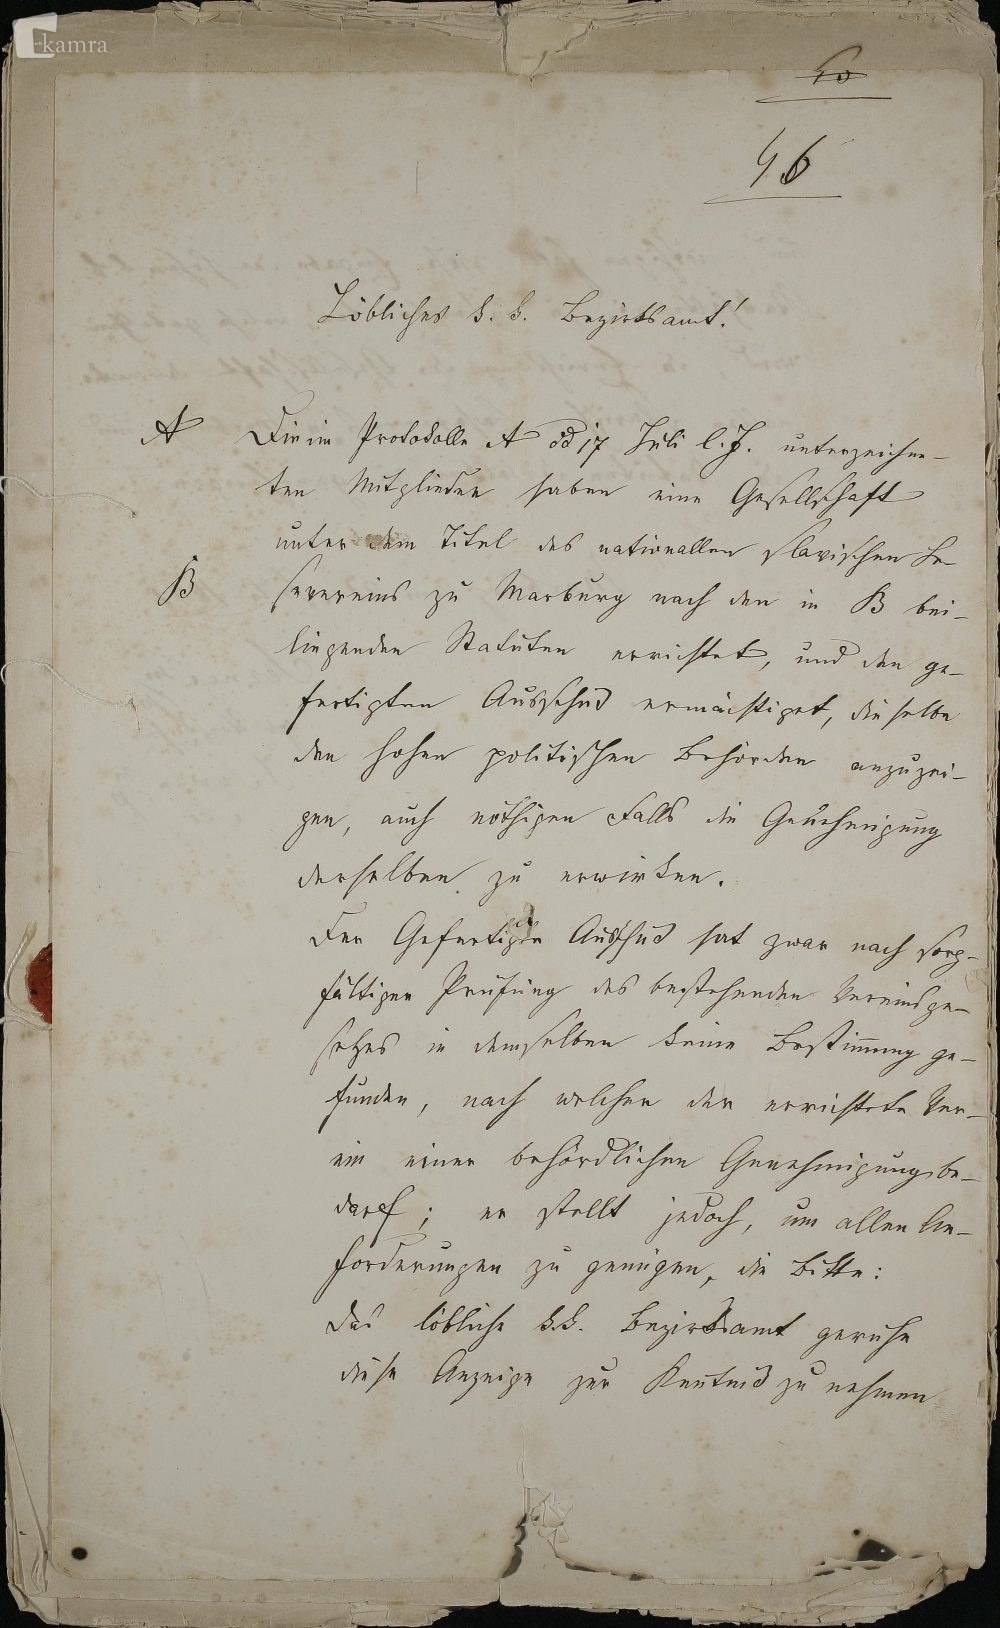 kamra
46
Löbliches k. k. Bezirksamt!
A Die im Protokolle A dd 17 Juli l. J. unterzeichne-
ten Mitglieder haben eine Gesellschaft
unter dem Titel des nationallen slavischen Le-
B severeins zu Marburg nach den in B bei-
liegenden Statuten errichtet, und den ge-
fertigten Ausschuß ermächtiget, dieselbe
den hohen politischen Behörden anzuzei-
gen, auch nöthigen Falls die Genehmigung
derselben zu erwirken.
Der Gefertigte Ausschuß hat zwar nach sorg-
fältiger Prüfung des bestehenden Vereinsge-
setzes in demselben keine Bestim̅ung ge-
funden, nach welcher der errichtete Ver-
ein einer behördlichen Genehmigung be-
darf; er stellt jedoch, um allen An-
forderungen zu genügen, die Bitte:
Das löbliche k.k. Bezirksamt geruhe
diese Anzeige zur Ken̅tniß zu nehmen